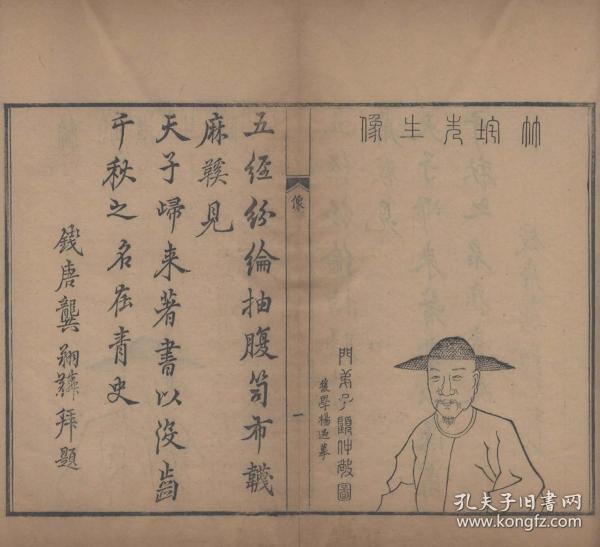 竹垞先生像
門弟子顧仲圖
後學楊摹
像
一
五經紛綸抽腹笥布韈
麻鞵見
天子歸來著書以没齒
千秋之名在青史
錢唐龔翔麟拜題
孔夫子旧书网
www.kongfz.com